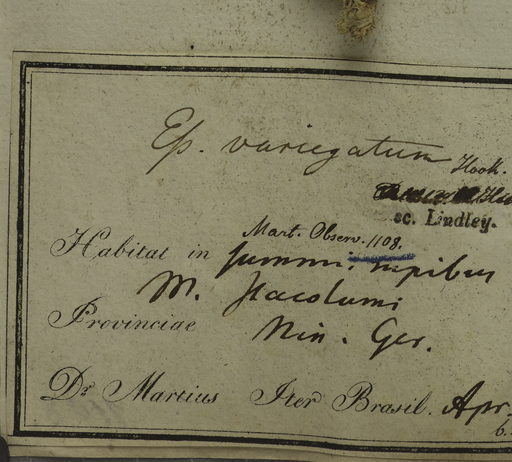 Ep. variegatum Hook.
sc. Lindley.
Mart. Observ. 1108.
Habitat in summi. rupibus
M. Itacolumi
Provinciae Min. Ger.
Dr Martius Iter Brasil. Apr.
6.